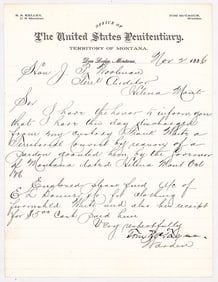 R. S. KELLEY,
U. S. Marshal.
TOM McTAGUE,
Warden.
OFFICE OF
The United States Penitentiary,
TERRITORY OF MONTANA.
Deer Lodge, Montana, Nov 2 1886
Hon J. P. Woolman
Terr Auditor
Helena Mont
Sir
I have the honor to inform you
that I have this day discharged
from my custody Frank White a
Territorial Convict by reason of a
Pardon granted him by the Governor
of Montana dated Helena Mont Oct
86
Enclosed please find a/c of
E. L. for clothing
furnished White and also his receipt
for $5.00 Cash paid him
Very respectfully
Tom McTague
Warden